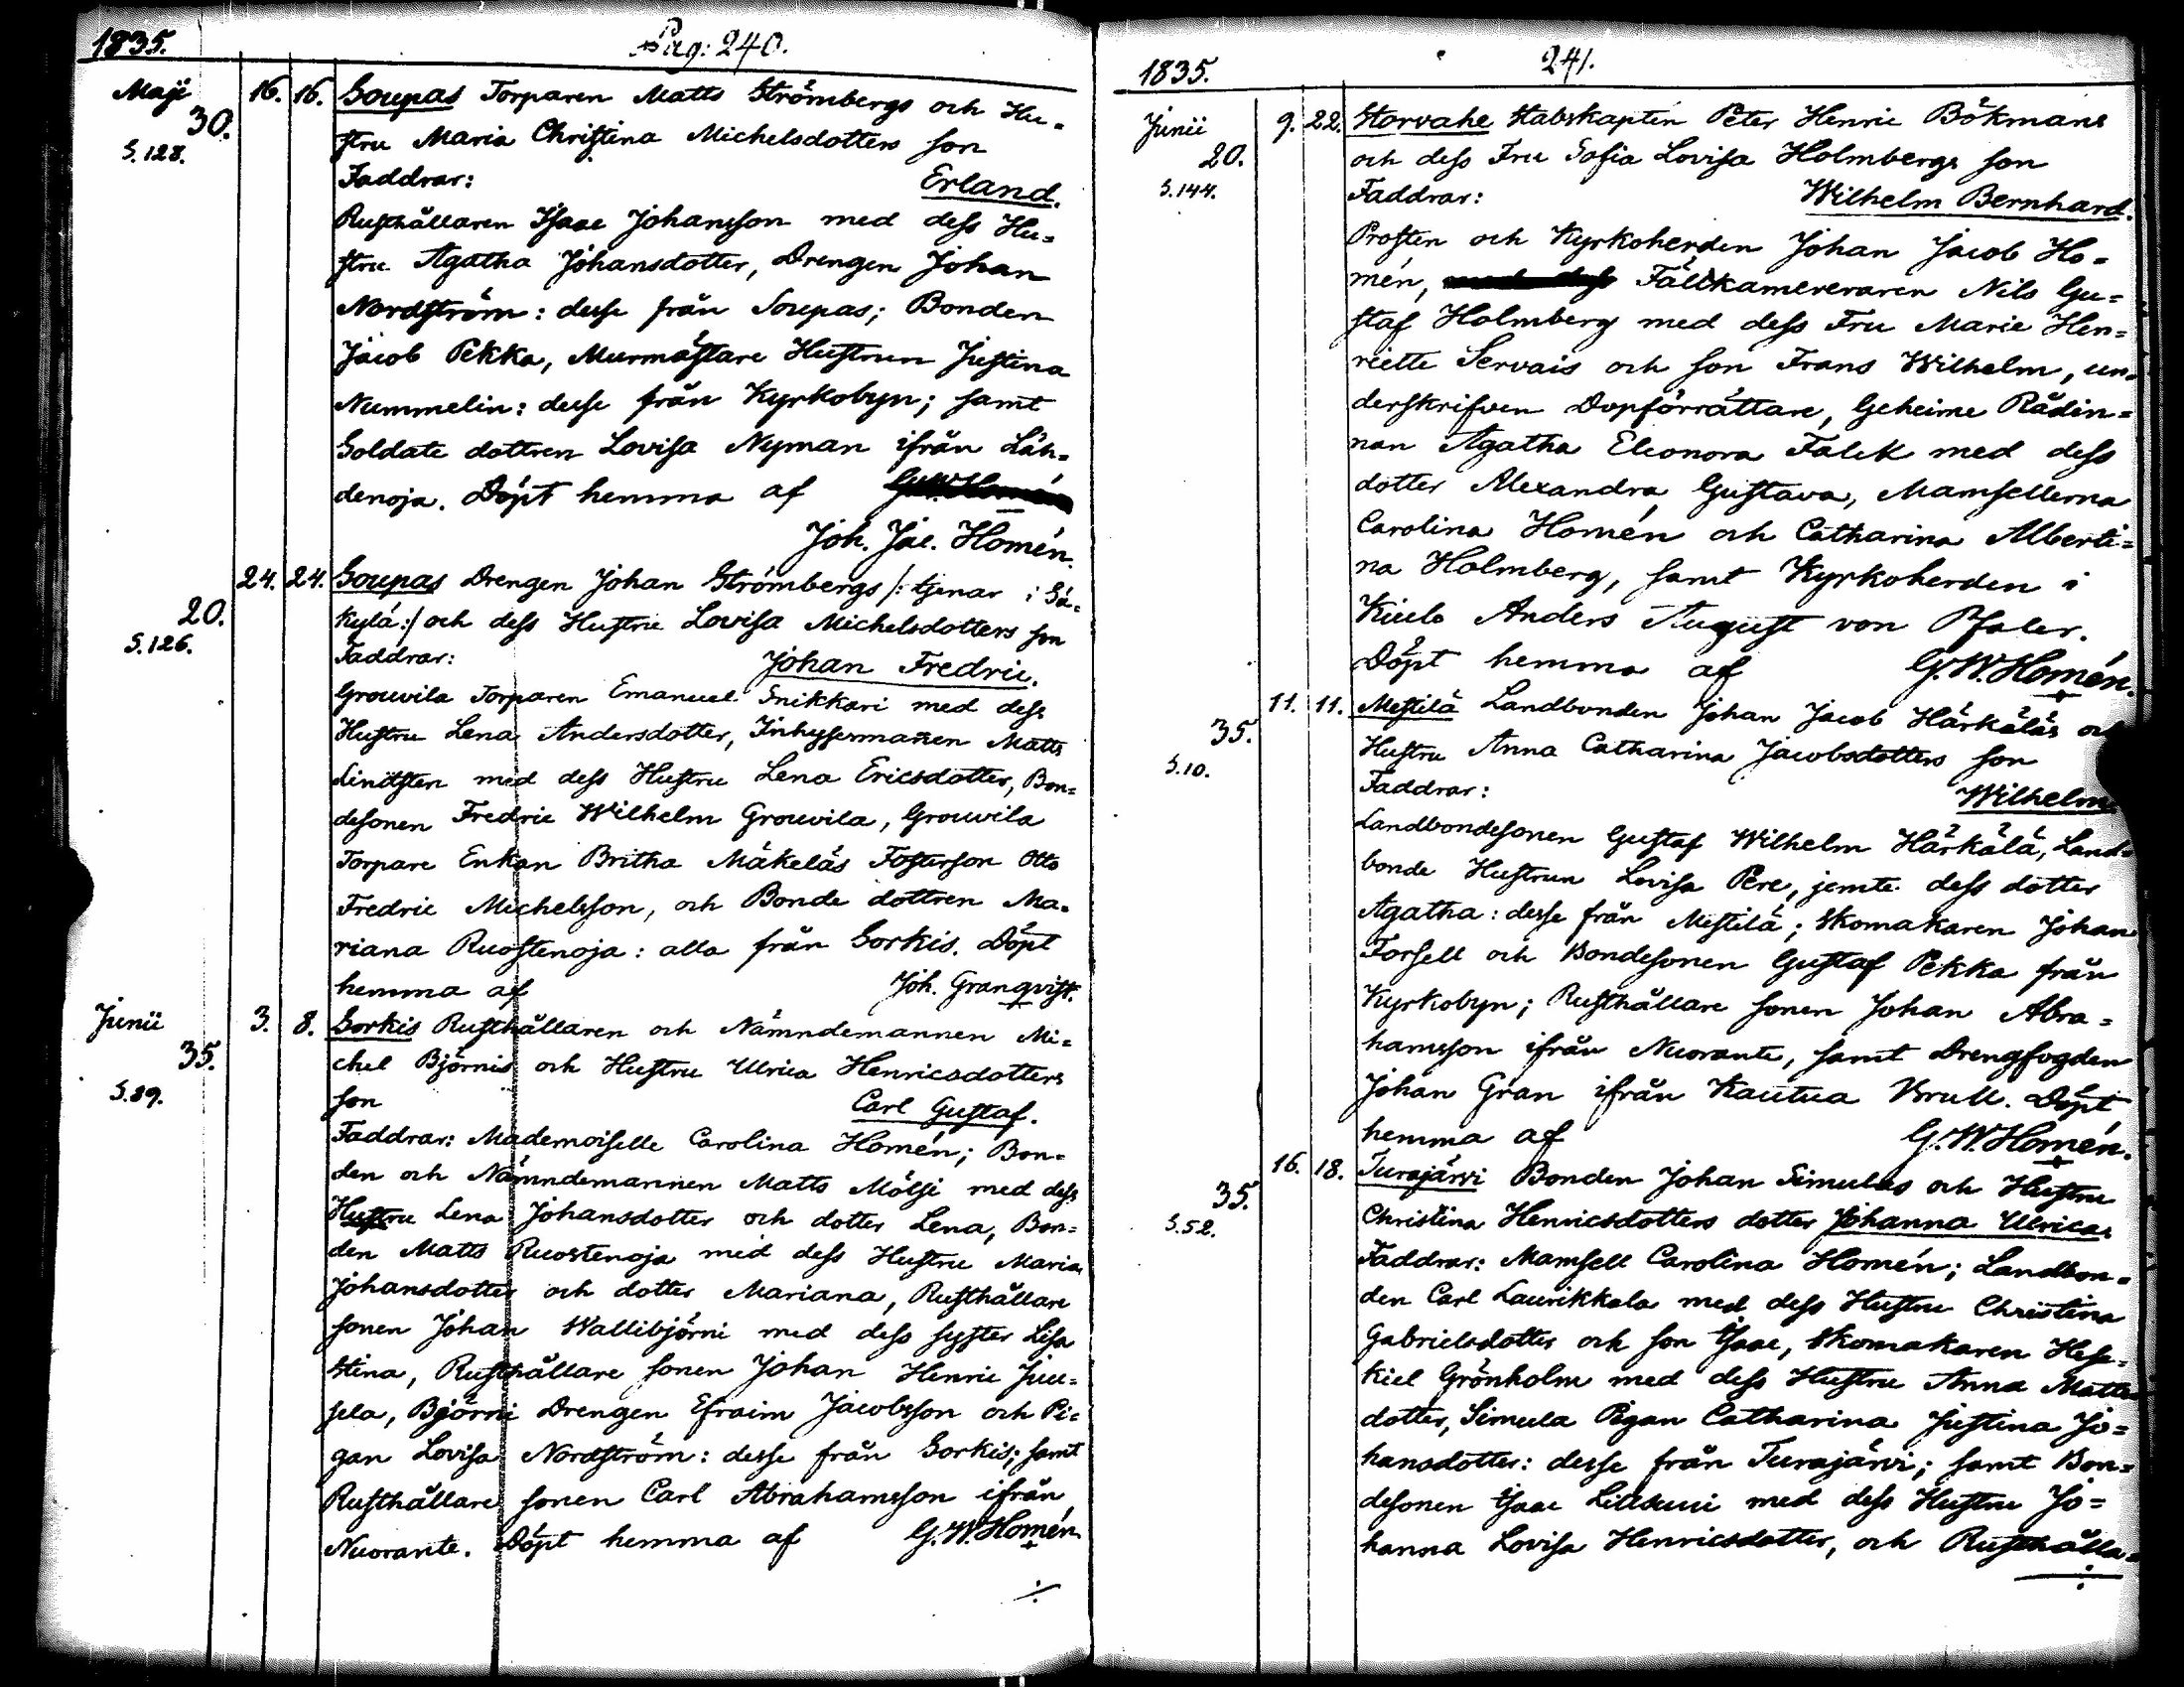 1835.
Pag: 240.
Maji 16. 16. Soupas Torparen Matts Strömbergs och Hu=
30.
stru Maria Christina Michelsdotters son
S.128.
Faddrar: Erland.
Rusthållaren Isaac Johansson med dess Hu=
stru Agatha Johansdotter, Drengen Johan
Nordström: desse från Soupas; Bonden
Jacob Pekka, Murmästare Hustrun Justina
Nummelin: desse från Kyrkobyn; samt
Soldate dottren Lovisa Nyman ifrån Läh=
denoja. Döpt hemma af
Joh. Jac. Homén.
24. 24. Soupas Drengen Johan Strömbergs /: tjenar i Sä=
20.
kylä :/ och dess Hustru Lovisa Michelsdotters son
S.126.
Faddrar: Johan Fredric.
Grouvila Torparen Emanuel Snikkari med dess
Hustru Lena Andersdotter, Inhysesmannen Matts
Lindsten med dess Hustru Lena Ericsdotter, Bon=
desonen Fredric Wilhelm Grouvila, Grouvila
Torpare Enkan Britha Mäkeläs Fosterson Otto
Fredric Michelsson, och Bonde dottren Ma=
riana Ruostenoja: alla från Sorkis. Döpt
hemma af Joh. Granqvist.
Junii 3. 8. Sorkis Rusthållaren och Nämndemannen Mi=
35.
chel Björnis och Hustru Ulrica Henricsdotters
S.89.
son Carl Gustaf.
Faddrar: Mademoiselle Carolina Homén; Bon=
den och Nämndemannen Matts Mölsi med dess
Hustru Lena Johansdotter och dotter Lena, Bon=
den Matts Ruostenoja med dess Hustru Maria
Johansdotter och dotter Mariana, Rusthållare
sonen Johan Wallibjörni med dess syster Lisa
Stina, Rusthållare sonen Johan Henric Juu=
sela, Björni Drengen Efraim Jacobsson och Pi=
gan Lovisa Nordström: desse från Sorkis; samt
Rusthållare sonen Carl Abrahamsson ifrån
Nuorante. Döpt hemma af G. W. Homén
1835.
241.
Junii 9. 22. Storvahe Stabskapten Peter Henric Bökmans
20.
och dess Fru Sofia Lovisa Holmbergs son
S.144.
Faddrar: Wilhelm Bernhard.
Prosten och Kyrkoherden Johan Jacob Ho=
mén, Fältkamereraren Nils Gu=
staf Holmberg med dess Fru Marie Hen=
riette Servais och son Frans Wilhelm, un=
derskrifven Dopförrättare, Geheime Rådin=
nan Agatha Eleonora Falck med dess
dotter Alexandra Gustava, Mamsellerna
Carolina Homén och Catharina Alberti=
na Holmberg, samt Kyrkoherden i
Kiulo Anders August von Pfaler.
Döpt hemma af G. W. Homén.
11. 11. Mestilä Landbonden Johan Jacob Härkäläs och
35.
Hustru Anna Catharina Jacobsdotters son
S.10.
Faddrar: Wilhelm
Landbondesonen Gustaf Wilhelm Härkälä, Land=
bonde Hustrun Lovisa Pere, jemte dess dotter
Agatha: desse från Mestilä; Skomakaren Johan
Forsell och Bondesonen Gustaf Pekka från
Kyrkobyn; Rusthållare sonen Johan Abra=
hamsson ifrån Nuorante, samt Drengfogden
Johan Gran ifrån Kautua Bruk. Döpt
hemma af G. W. Homén.
16. 18. Turajärvi Bonden Johan Simulas och Hustru
35.
Christina Henricsdotters dotter Johanna Ulrica.
S.52.
Faddrar: Mamsell Carolina Homén; Landbon=
den Carl Laurikkala med dess Hustru Christina
Gabrielsdotter och son Isaac, Skomakaren Hese=
kiel Grönholm med dess Hustru Anna Matts
dotter, Simula Pigan Catharina Justina Jo=
hansdotter: desse från Turajärvi; samt Bon=
desonen Isaac Lillsuni med dess Hustru Jo=
hanna Lovisa Henricsdotter, och Rusthålla=